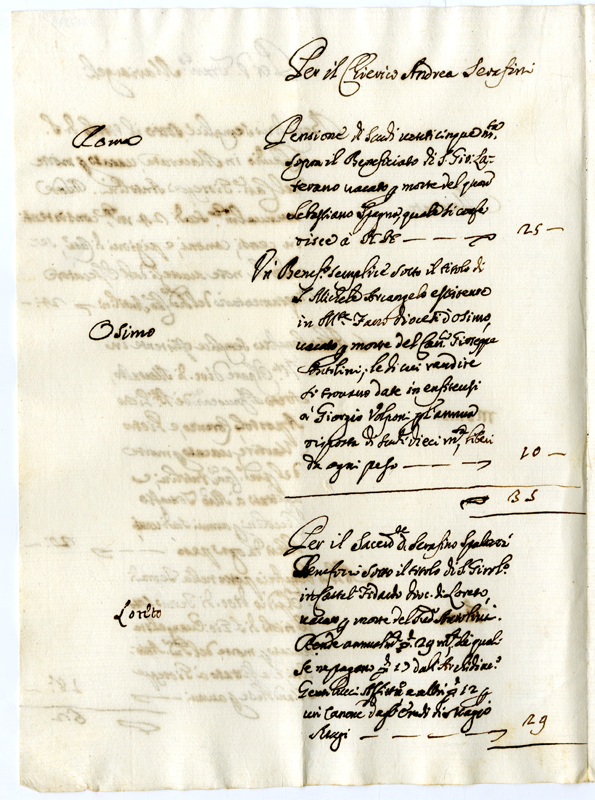 Per il Chierico Andrea Serafini
Roma
Pensione di Scudi venticinque m.ta
sopra il Beneficiato di S. Gio: La-
terano vacato p morte del quod
Sebastiano Spagna, quale si confe
risce à 25 —
Un Benef.o semplice sotto il titolo di
S. Michele Arcangelo esistente
Osimo
in diocesi d'osimo,
vacato p morte del Can.co Gioseppe
le di cui rendite
si trovano date in enfiteusi
à Giorgio Volponi p l'annua
risposta di Scudi dieci m.ta, liberi
da ogni peso 10 —
35
Per il Sacerd.te d. Serafino
Beneficio sotto il titolo di S. Girol.o
in Castel Fidardo dioc. di Loreto,
Loreto
vacato p morte del
Rende annual.te 29 m.ta de quali
se ne pagano 17 dall'
e altri 12 p
un Canone dagl'Eredi di
29